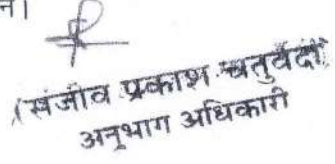 न।
(संजीव प्रकाश चतुर्वेदी)
अनुभाग अधिकारी